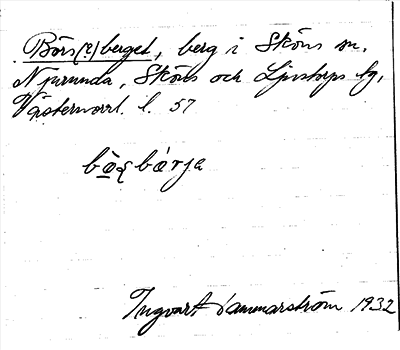 Börs(?)berget, berg i Sköns sn.
Njurunda, Sköns och Ljustorps tg,
Västernorrl. l. 57
bö̀ʂbǽrja
Ingvart Hammarström 1932